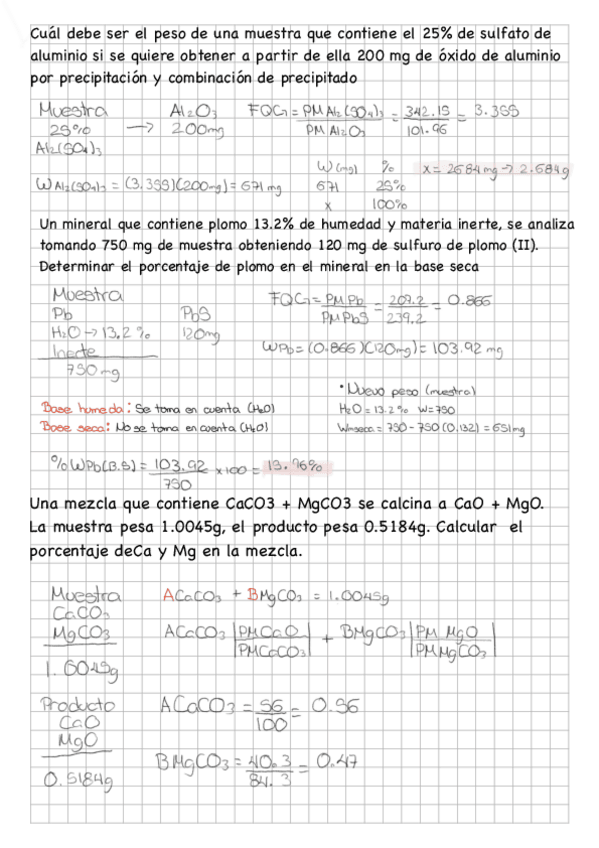 Cuál debe ser el peso de una muestra que contiene el 25% de sulfato de
aluminio si se quiere obtener a partir de ella 200 mg de óxido de aluminio
por precipitación y combinación de precipitado
Muestra Al2O3 FQG = PM Al2(SO4)3 = 342.15 = 3.355
25% → 200mg PM Al2O3 101.96
Al2(SO4)3
W(mg) % x = 2684 mg → 2.684g
W Al2(SO4)3 = (3.355)(200mg) = 671 mg 671 25%
x 100%
Un mineral que contiene plomo 13.2% de humedad y materia inerte, se analiza
tomando 750 mg de muestra obteniendo 120 mg de sulfuro de plomo (II).
Determinar el porcentaje de plomo en el mineral en la base seca
Muestra FQG = PM Pb = 207.2 = 0.866
Pb PbS PM PbS 239.2
H2O → 13.2 % 120mg
Inerte WPb = (0.866)(120mg) = 103.92 mg
750mg
• Nuevo peso (muestra)
Base humeda: Se toma en cuenta (H2O) H2O = 13.2% W=750
Base seca: No se toma en cuenta (H2O) Wm seca = 750 - 750 (0.132) = 651mg
% WPb(B.S) = 103.92 x 100 = 15.96%
750
Una mezcla que contiene CaCO3 + MgCO3 se calcina a CaO + MgO.
La muestra pesa 1.0045g, el producto pesa 0.5184g. Calcular el
porcentaje deCa y Mg en la mezcla.
Muestra ACaCO3 + BMgCO3 = 1.0045g
CaCO3
MgCO3 ACaCO3 |PM CaO| + BMgCO3 |PM MgO|
|PM CaCO3| |PM MgCO3|
1.0045g
Producto ACaCO3 = 56 = 0.56
CaO 100
MgO
BMgCO3 = 40.3 = 0.47
0.5184g 84.3